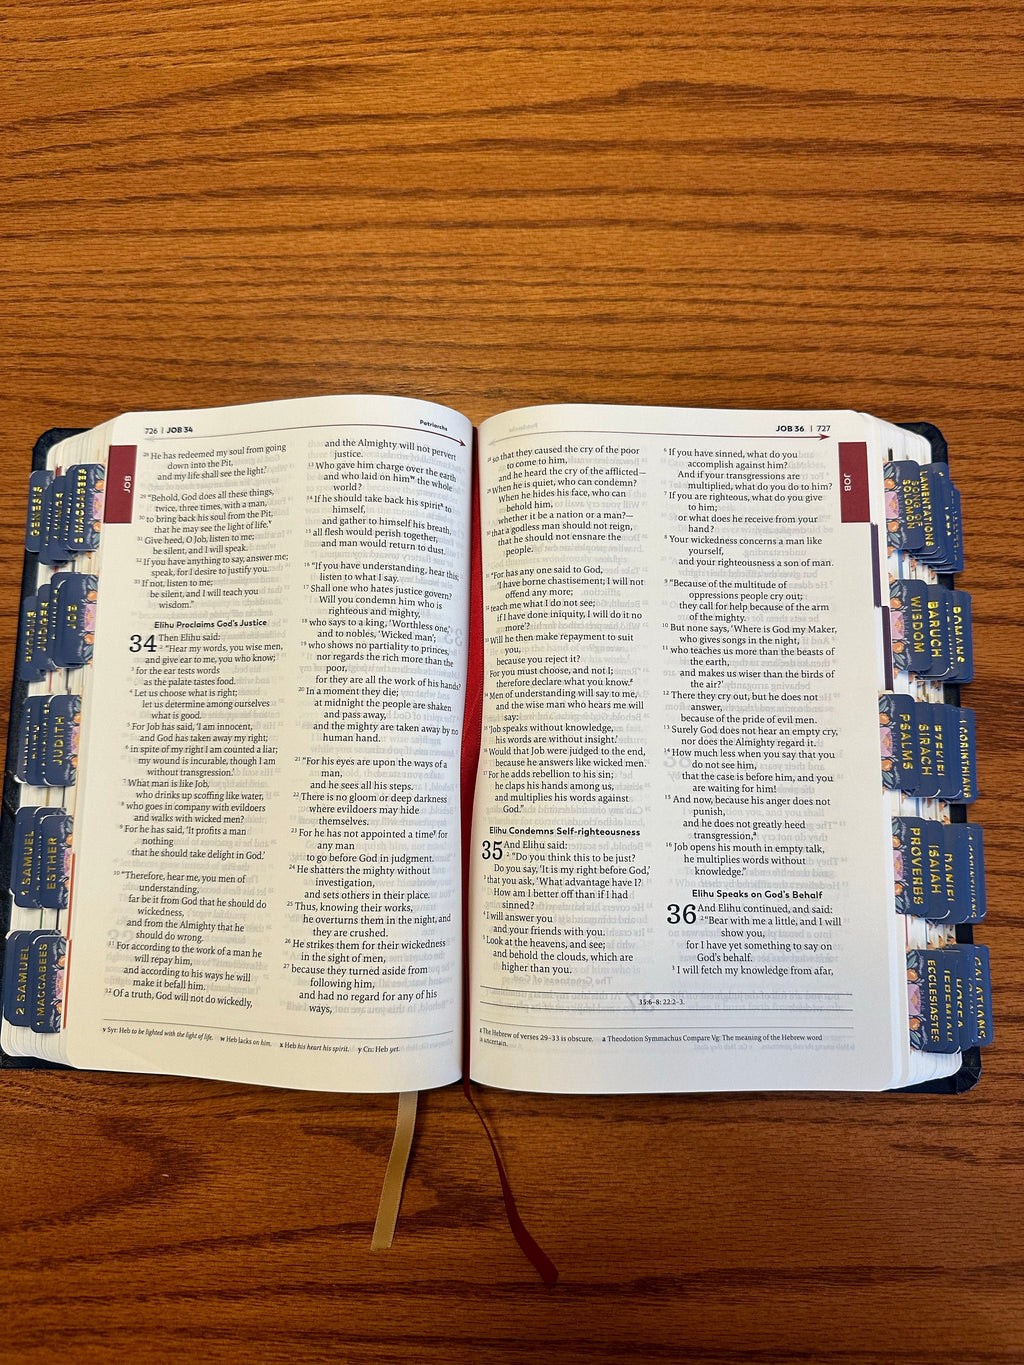 726 | JOB 34
Patriarchs
JOB
28 He has redeemed my soul from going
down into the Pit,
and my life shall see the light.'
29 "Behold, God does all these things,
twice, three times, with a man,
30 to bring back his soul from the Pit,
that he may see the light of life.v
31 Give heed, O Job, listen to me;
be silent, and I will speak.
32 If you have anything to say, answer me;
speak, for I desire to justify you.
33 If not, listen to me;
be silent, and I will teach you
wisdom."
Elihu Proclaims God's Justice
34 Then Elihu said:
2 "Hear my words, you wise men,
and give ear to me, you who know;
3 for the ear tests words
as the palate tastes food.
4 Let us choose what is right;
let us determine among ourselves
what is good.
5 For Job has said, 'I am innocent,
and God has taken away my right;
6 in spite of my right I am counted a liar;
my wound is incurable, though I am
without transgression.'
7 What man is like Job,
who drinks up scoffing like water,
8 who goes in company with evildoers
and walks with wicked men?
9 For he has said, 'It profits a man
nothing
that he should take delight in God.'
10 "Therefore, hear me, you men of
understanding,
far be it from God that he should do
wickedness,
and from the Almighty that he
should do wrong.
11 For according to the work of a man he
will repay him,
and according to his ways he will
make it befall him.
12 Of a truth, God will not do wickedly,
and the Almighty will not pervert
justice.
13 Who gave him charge over the earth
and who laid on himw the whole
world?
14 If he should take back his spiritx to
himself,
and gather to himself his breath,
15 all flesh would perish together,
and man would return to dust.
16 "If you have understanding, hear this;
listen to what I say.
17 Shall one who hates justice govern?
Will you condemn him who is
righteous and mighty,
18 who says to a king, 'Worthless one,'
and to nobles, 'Wicked man';
19 who shows no partiality to princes,
nor regards the rich more than the
poor,
for they are all the work of his hands?
20 In a moment they die;
at midnight the people are shaken
and pass away,
and the mighty are taken away by no
human hand.
21 "For his eyes are upon the ways of a
man,
and he sees all his steps.
22 There is no gloom or deep darkness
where evildoers may hide
themselves.
23 For he has not appointed a timey for
any man
to go before God in judgment.
24 He shatters the mighty without
investigation,
and sets others in their place.
25 Thus, knowing their works,
he overturns them in the night, and
they are crushed.
26 He strikes them for their wickedness
in the sight of men,
27 because they turned aside from
following him,
and had no regard for any of his
ways,
v Syr: Heb to be lighted with the light of life. w Heb lacks on him. x Heb his heart his spirit. y Cn: Heb yet.
JOB 36 | 727
JOB
28 so that they caused the cry of the poor
to come to him,
and he heard the cry of the afflicted—
29 When he is quiet, who can condemn?
When he hides his face, who can
behold him,
whether it be a nation or a man?—
30 that a godless man should not reign,
that he should not ensnare the
people.
31 "For has any one said to God,
'I have borne chastisement; I will not
offend any more;
32 teach me what I do not see;
if I have done iniquity, I will do it no
more'?
33 Will he then make repayment to suit
you,
because you reject it?
For you must choose, and not I;
therefore declare what you know.z
34 Men of understanding will say to me,
and the wise man who hears me will
say:
35 'Job speaks without knowledge,
his words are without insight.'
36 Would that Job were judged to the end,
because he answers like wicked men.
37 For he adds rebellion to his sin;
he claps his hands among us,
and multiplies his words against
God."
Elihu Condemns Self-righteousness
35 And Elihu said:
2 "Do you think this to be just?
Do you say, 'It is my right before God,'
3 that you ask, 'What advantage have I?
How am I better off than if I had
sinned?'
4 I will answer you
and your friends with you.
5 Look at the heavens, and see;
and behold the clouds, which are
higher than you.
6 If you have sinned, what do you
accomplish against him?
And if your transgressions are
multiplied, what do you do to him?
7 If you are righteous, what do you give
to him;
or what does he receive from your
hand?
8 Your wickedness concerns a man like
yourself,
and your righteousness a son of man.
9 "Because of the multitude of
oppressions people cry out;
they call for help because of the arm
of the mighty.
10 But none says, 'Where is God my Maker,
who gives songs in the night,
11 who teaches us more than the beasts of
the earth,
and makes us wiser than the birds of
the air?'
12 There they cry out, but he does not
answer,
because of the pride of evil men.
13 Surely God does not hear an empty cry,
nor does the Almighty regard it.
14 How much less when you say that you
do not see him,
that the case is before him, and you
are waiting for him!
15 And now, because his anger does not
punish,
and he does not greatly heed
transgression,a
16 Job opens his mouth in empty talk,
he multiplies words without
knowledge."
Elihu Speaks on God's Behalf
36 And Elihu continued, and said:
2 "Bear with me a little, and I will
show you,
for I have yet something to say on
God's behalf.
3 I will fetch my knowledge from afar,
35:6–8: 22:2–3.
z The Hebrew of verses 29–33 is obscure. a Theodotion Symmachus Compare Vg: The meaning of the Hebrew word
is uncertain.
GENESIS
2 MACCABEES
EXODUS
JUDGES
JOB
JUDITH
1 SAMUEL
ESTHER
2 SAMUEL
1 MACCABEES
SONG OF
SOLOMON
LAMENTATIONS
WISDOM
BARUCH
ROMANS
PSALMS
SIRACH
EZEKIEL
1 CORINTHIANS
PROVERBS
ISAIAH
DANIEL
2 CORINTHIANS
ECCLESIASTES
JEREMIAH
HOSEA
GALATIANS